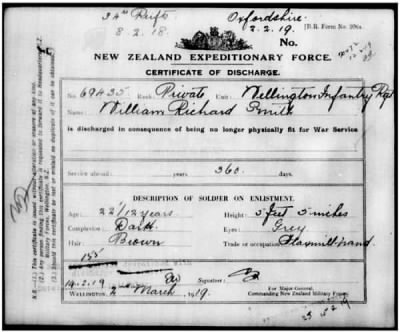 34th Rfts
8.2.18.
Oxfordshire.
3.2.19.
[B.R. Form No.
No.
NEW ZEALAND EXPEDITIONARY FORCE.
CERTIFICATE OF DISCHARGE.
No. 69435 Rank: Private Unit: Wellington Infantry Regt
Name: William Richard Smith
is discharged in consequence of being no longer physically fit for War Service
Service abroad: years 360 days.
DESCRIPTION OF SOLDIER ON ENLISTMENT.
Age: 22 1/12 years Height: 5 feet 5 inches
Complexion: Dark Eyes: Grey
Hair: Brown Trade or occupation: Flaxmill hand
14.2.19 Signature:
WELLINGTON, 2 March, 1919.
For Major-General,
Commanding New Zealand Military Forces.
N.B.—(1.) This certificate is issued without alteration or erasure of any kind.
(2.) Any person finding this certificate is requested to forward it to Headquarters,
Military Forces, Wellington, N.Z.
(3.) Should this certificate be lost or mislaid no duplicate of it can be obtained.